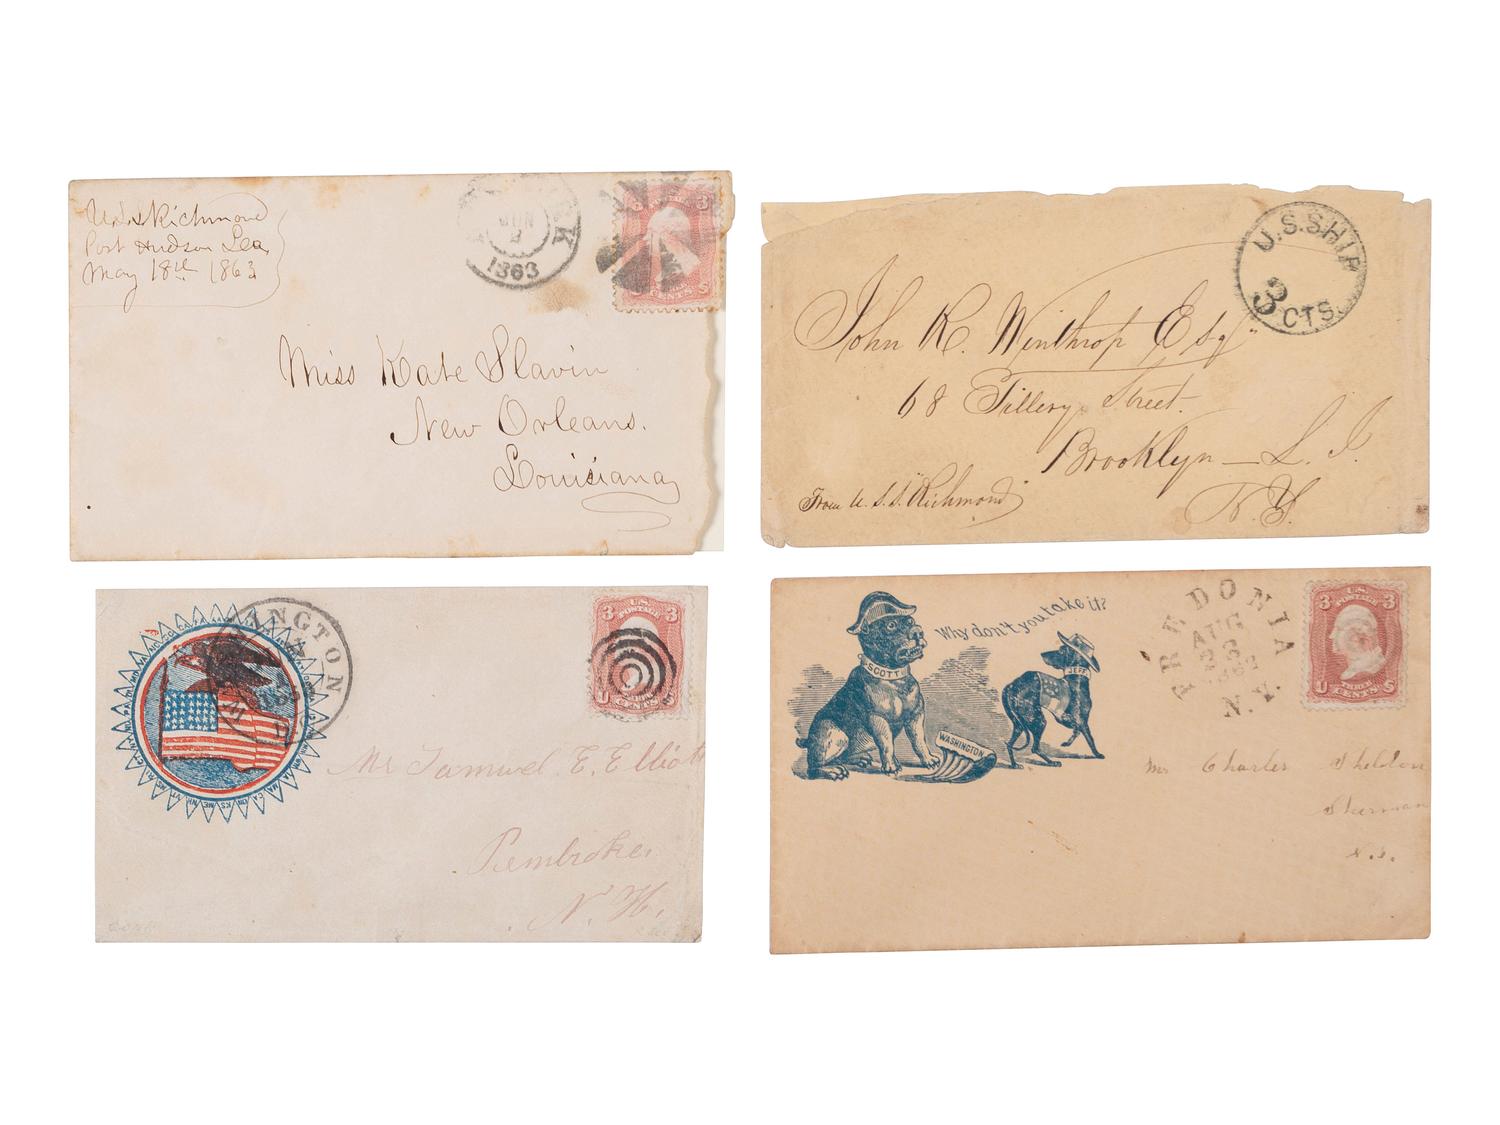 U.S.S Richmond
Port Hudson Lea
May 18th 1863
K
JUN
2
1863
3
CENTS
Miss Kate Slavin
New Orleans.
Louisiana
U.S. SHIP
3 CTS.
John R. Winthrop Esq
68 Tillery Street.
Brooklyn — L. I.
N. Y.
From U.S.S. "Richmond"
INGTON
U.S.
POSTAGE
3 3
CENTS
Mr Samuel E. Elliott
Pembroke.
N. H.
Why don't you take it?
SCOTT
JEFF
WASHINGTON
FREDONIA
AUG
N.Y.
U.S.
POSTAGE
3 3
U S
Mr Charles Sheldon
Sherman